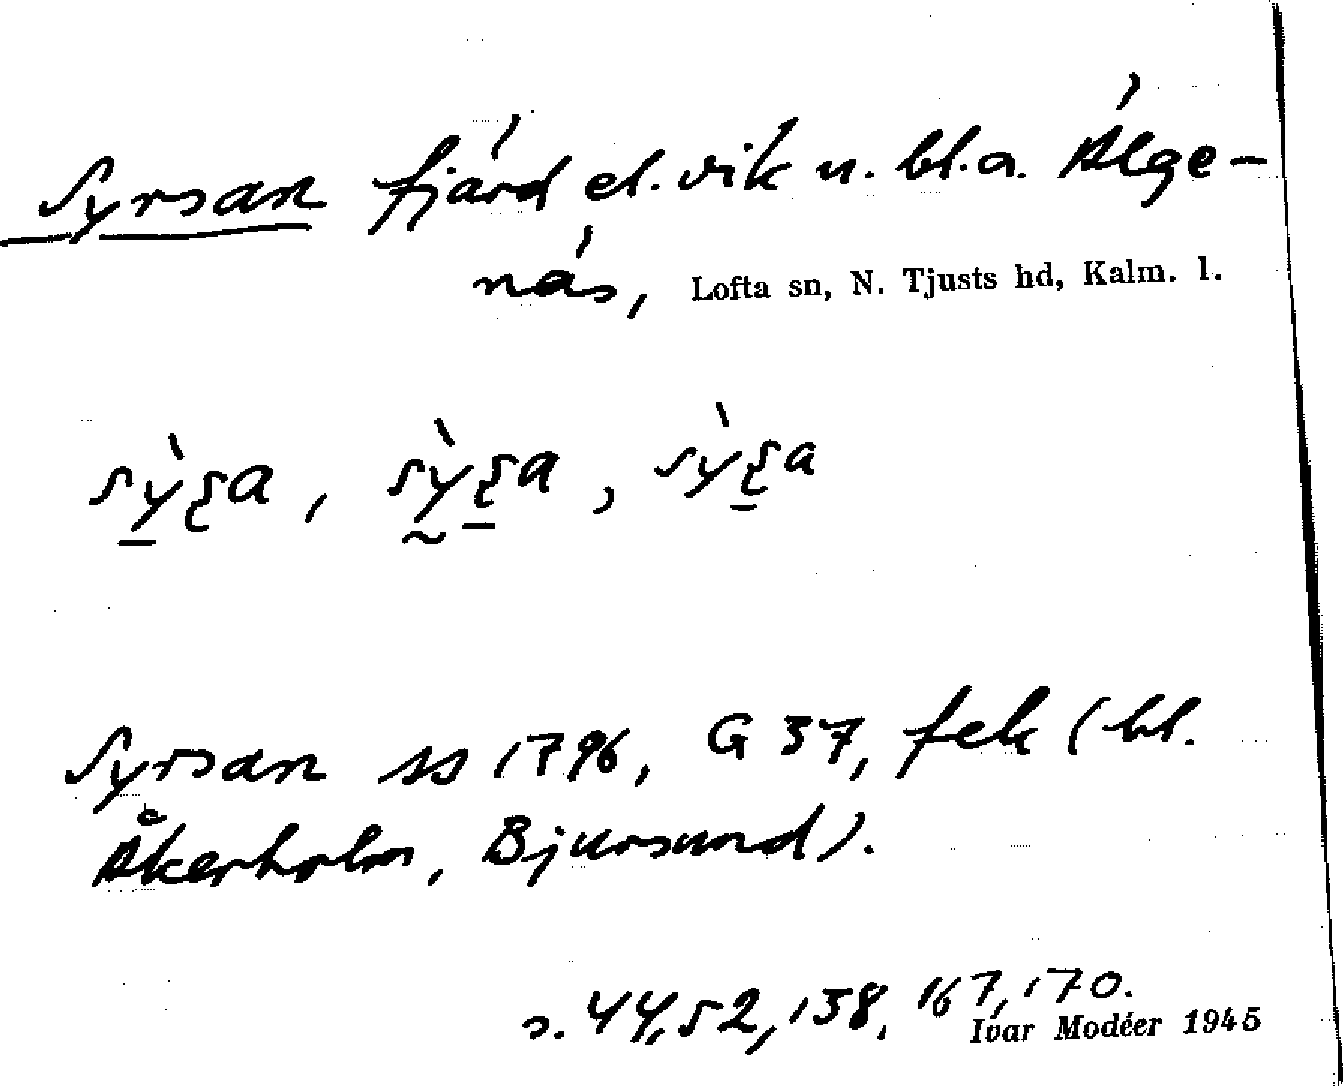 Syrsan fjärd el. vik u. bl.a. Älge-
näs, Lofta sn, N. Tjusts hd, Kalm. l.
Syrsan ss 1796, G 37, fek (bl.
Åkerholm, Bjursund).
s. 44, 52, 138, 167, 170.
Ivar Modéer 1945